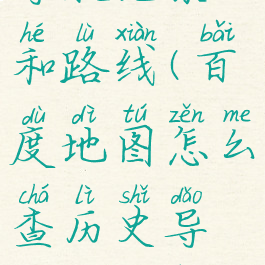 hé lù xiàn bǎi
和路线(百
dù dì tú zěn me
度地图怎么
chá lì shǐ dǎo
查历史导